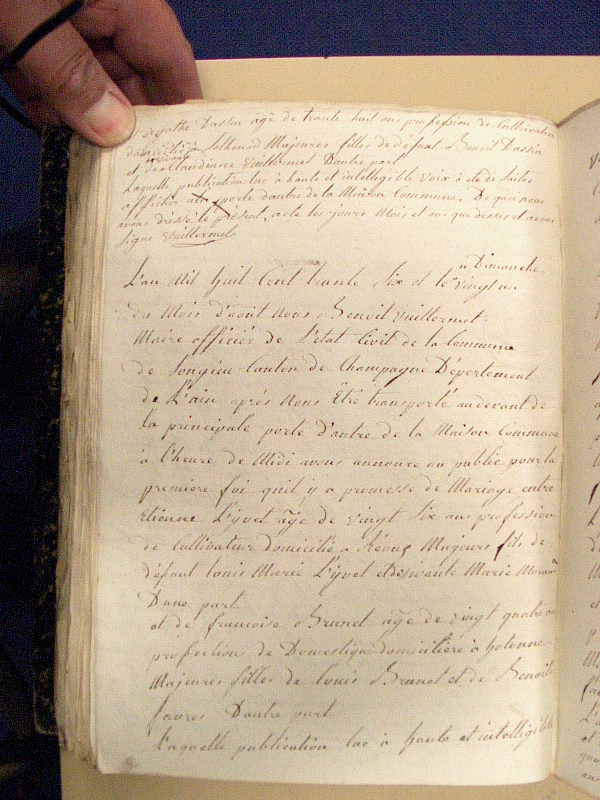 et d'agathe Dassin âgé de trante huit ans profession de Cultivatric
domiciliée à Sothonod Majeures filles de défunt Benoit Dassin
et de vivante Claudinne Vuillermet Dautre part
Laquelle publication lue à haute et intelligible voix à été de suites
affichée à la porte dantré de la Maison Commune. De quoi nous
avons dréssé le présent, acte les jours Mois et ans que dessus et avons
signé Vuillermet
L'an Mil huit Cent trante Six et le vingt un Dimanche
du Mois d'août nous Benoit Vuillermet
Maire officier de l'état Civil de la Commune
de Songieu Canton de Champagne Département
de L'ain après Nous Être transporté audevant de
la principale porte d'antré de la Maison Commune
à l'heure de Midi avons annoncé au public pour la
première foi quil y a promesse de Mariage entre
Etienne L'yvet âgé de vingt Six ans profession
de Cultivateur domicilié à Majeurs fils de
défunt louis Marie L'yvet et de vivante Marie
Dune part
et de francoise Brunet âgée de vingt quatre ans
profession de Domestique domicilière à hotonne
Majeures filles de louis Brunet et de Benoîte
favres Dautre part
Laquelle publication lue à haute et intelligible